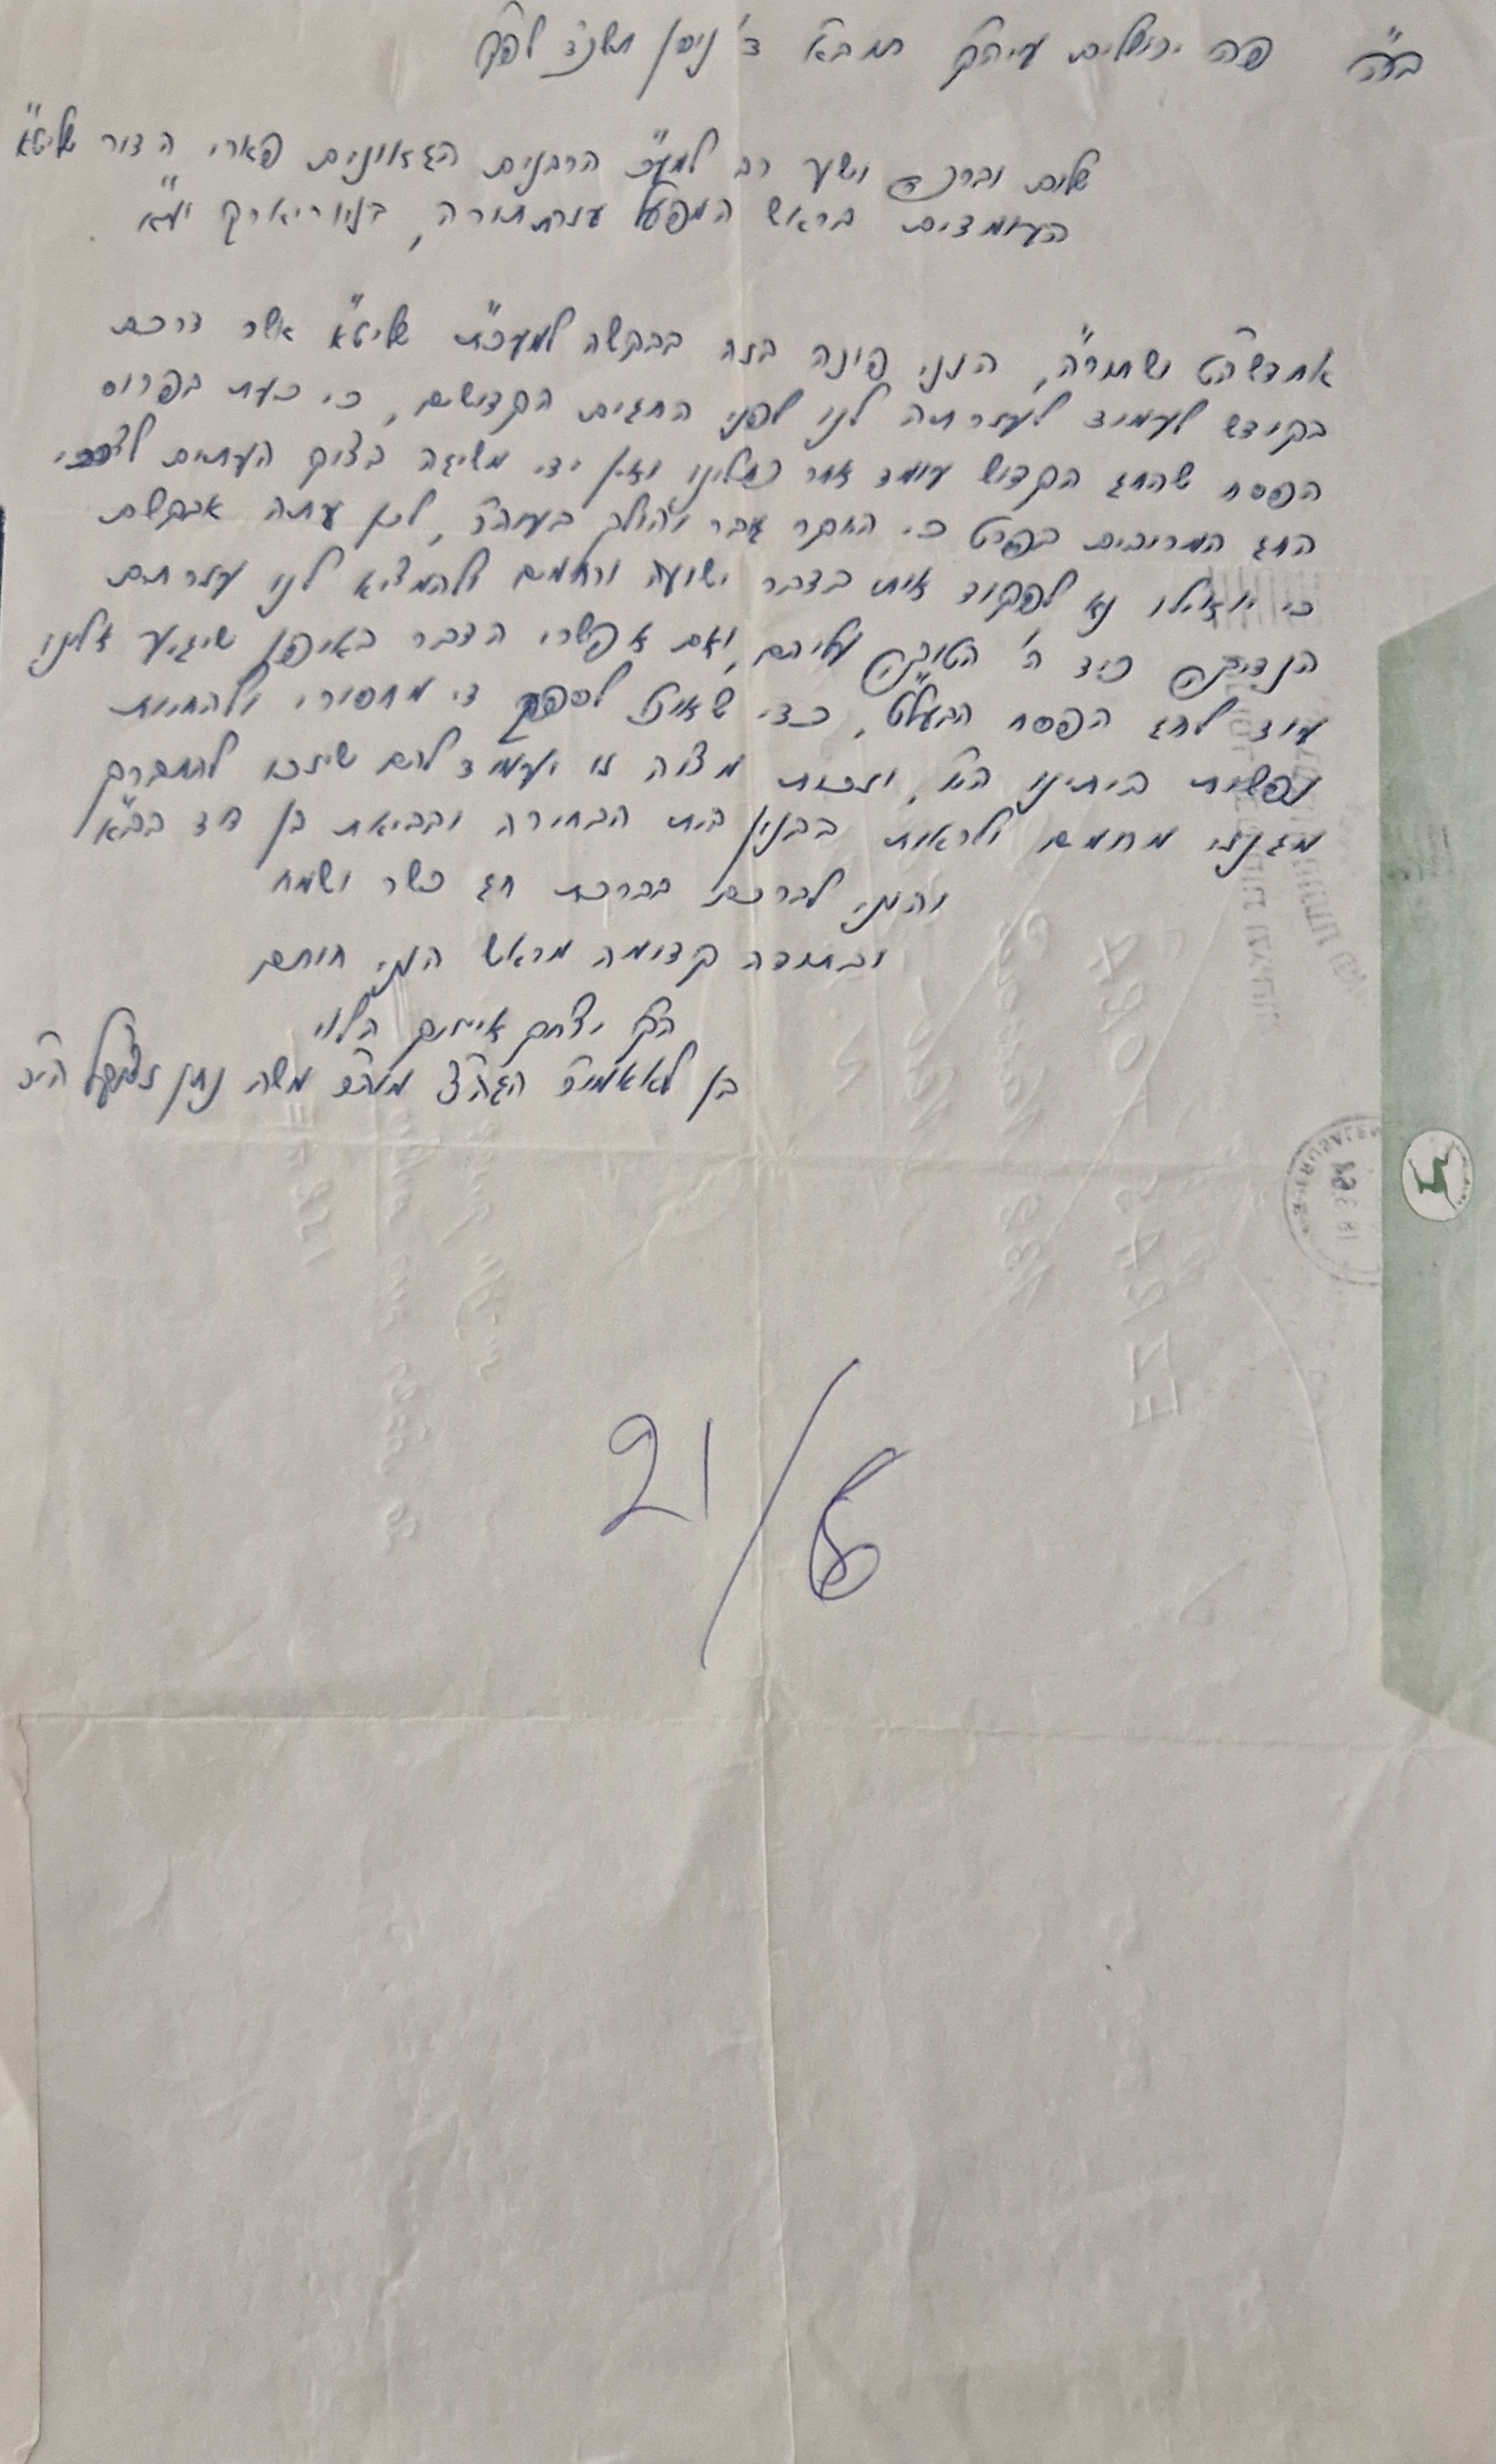 בע"ה פה ירושלים עיה"ק תובב"א ד' ניסן תשנ"ד לפ"ק
שלום וברכה וישע רב למע"כ הרבנים הגאונים פארי הדור שליט"א
העומדים בראש המפעל עזרת תורה, בניו יארק יע"א
אחדשה"ט ושתורה, הנני פונה בזה בבקשה למעכ"ת שליט"א אשר דרכם
בקודש לעמוד לעזרתה לנו לפני החגים הקדושים, כי כעת בפרוס
הפסח שהחג הקדוש עומד אחר כתלינו ואין ידי משיגה בצוק העתים לצרכי
החג המרובים בפרט כי היוקר גובר והולך בעוה"ר, לכן עתה אבקשם
כי יואילו נא לפקוד אותי בדבר ישועה ורחמים ולהמציא לנו עזרתם
הנדיבה כיד ה' הטובה עליהם, ואם אפשרי הדבר באופן שיגיע אלינו
עוד לחג הפסח הבעל"ט, כדי שאוכל לספק די מחסורי ולהחיות
נפשות ביתינו הי"ו, וזכות מצוה זו יעמוד להם שיזכו להתברך
מגנזי מרומים ולראות בבנין בית הבחירה ובביאת בן דוד בב"א
והנני לברכם בברכת חג כשר ושמח
ובתודה קדומה מראש הנני חותם
הק' יצחק אייזיק הלוי
בן לאאמו"ר הגה"צ מוה"ר משה נתן נטע הי"ד
21/6
JERUSALEM